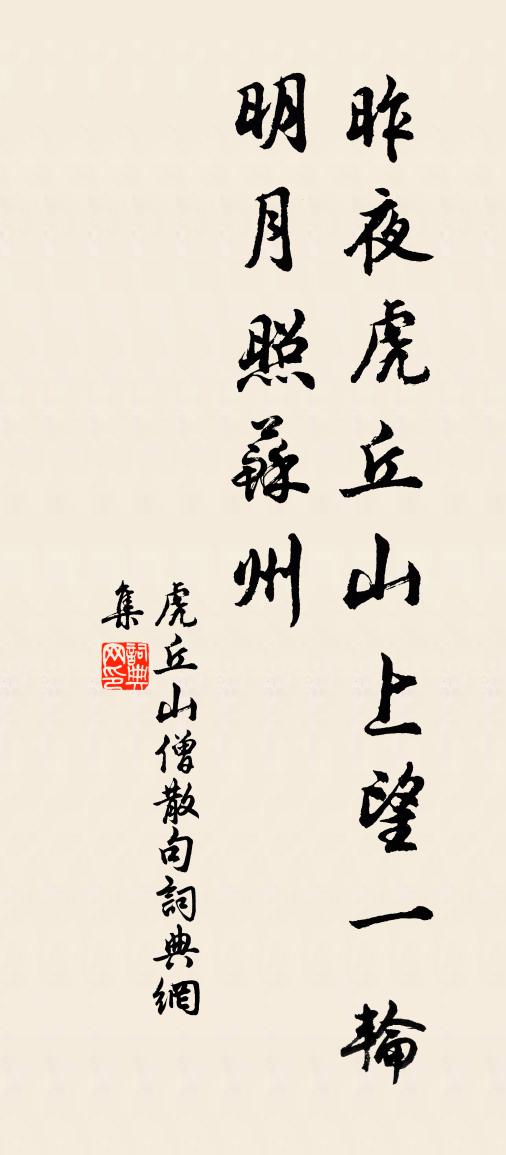 昨夜虎丘山上望一輪
明月照蘇州
虎丘山僧散句詞典網
集
詞典网印